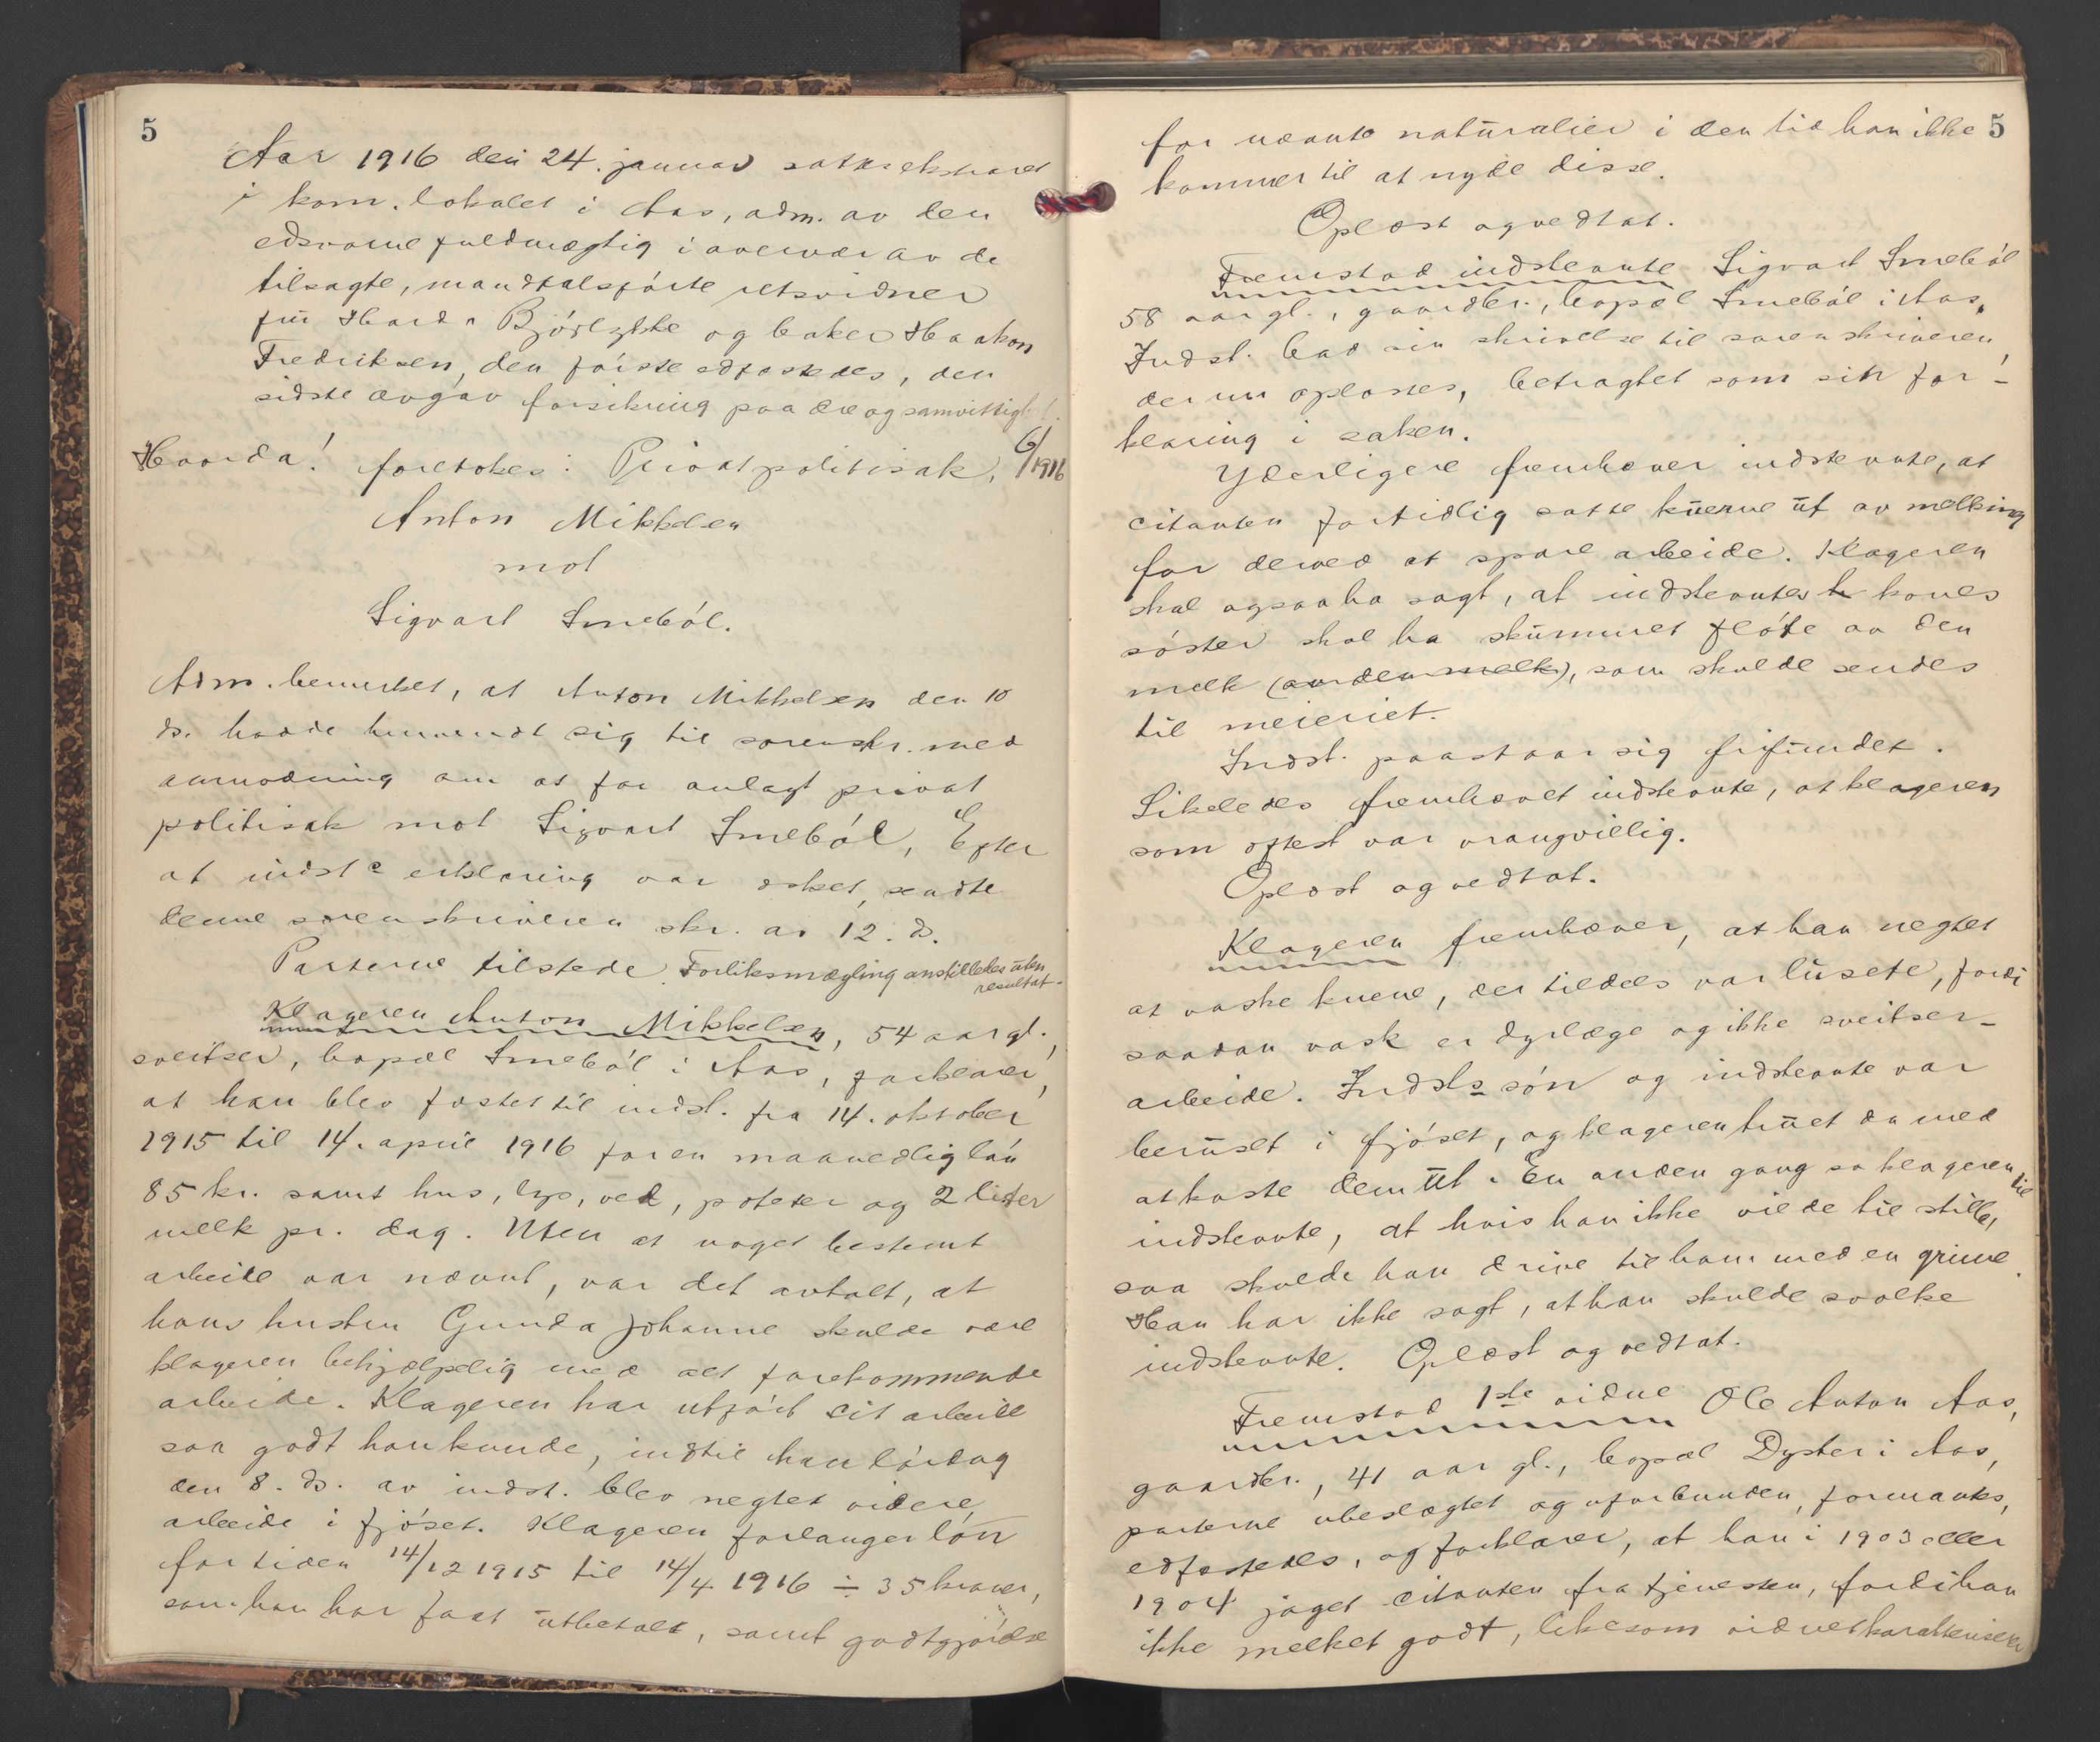 5
Aar 1916 den 24. januar sattes ekstraret
i kom. lokalet i Aas, adm. av den
edsvorne fuldmægtig i overvær av de
tilsagte, mandtalsførte retsvidner
fru Harda Bjørlykke og baker Haakon
Fredriksen, den første edfæstedes, den
sidste avgav forsikring paa ære og samvittighet.
Hvorda! foretokes: Privat politisak, 6/1916
Anton Mikkelsen
mot
Sigvart Smebøl.
Adm. bemerket, at Anton Mikkelsen den 10
ds. hadde henvendt sig til sorenskr. med
anmodning om at faa anlagt privat
politisak mot Sigvart Smebøl, Efter
at indst.s erklæring var æsket, sendte
denne sorenskriveren skr. av 12. ds.
Parterne tilstede. Forliksmægling anstilledes uten
resultat.
Klageren Anton Mikkelsen, 54 aar gl.,
sveitser, bopæl Smebøl i Aas, forklarer,
at han blev fæstet til indst. fra 14. oktober
1915 til 14. april 1916 for en maanedlig løn
85 kr. samt hus, lys, ved, poteter og 2 liter
melk pr. dag. Uten at noget bestemt
arbeide var nævnt, var det avtalt, at
hans hustru Gunda Johanne skulde være
klageren behjælpelig med alt forekommende
arbeide. Klageren har utført sit arbeide
saa godt han kunde, indtil han lørdag
den 8. ds. av indst. blev negtet videre
arbeide i fjøset. Klageren forlanger løn
for tiden 14/12 1915 til 14/4 1916 ÷ 35 kroner,
som han har faat utbetalt, samt godtgjørelse
5
for nævnte naturalier i den tid han ikke
kommer til at nyde disse.
Oplæst og vedtat.
Fremstod indstevnte Sigvart Smebøl
58 aar gl., gaardbr., bopæl Smebøl i Aas.
Indst. bad sin skrivelse til sorenskriveren,
der nu oplæstes, betragtet som sin for-
klaring i saken.
Yderligere fremhæver indstevnte, at
citanten for tidlig satte kuerne ut av melking
for derved at spare arbeide. Klageren
skal ogsaa ha sagt, at indstevntes h kones
søster skal ha skummet fløte av den
melk (av den melk), som skulde sendes
til meieriet.
Indst. paastaar sig frifundet.
Likeledes fremhævet indstevnte, at klageren
som oftest var vrangvillig.
Oplæst og vedtat.
Klageren fremhæver, at han negtet
at vaske kuene, der tildels var lusete, fordi
saadan vask er dyrlæge og ikke sveitser-
arbeide. Indsts søn og indstevnte var
beruset i fjøset, og klageren truet da med
at kaste dem ut. En anden gang sa klageren til
indstevnte, at hvis han ikke vilde tie stille,
saa skulde han drive til ham med en grime.
Han har ikke sagt, at han skulde svolke
indstevnte. Oplæst og vedtat.
Fremstod 1ste vidne Ole Anton Aas,
gaardbr., 41 aar gl., bopæl Dyster i Aas,
parterne ubeslægtet og uforbunden, formantes,
edfæstedes, og forklarer, at han i 1903 eller
1904 jaget citanten fra tjenesten, fordi han
ikke melket godt, likesom vidnet karakteriserer